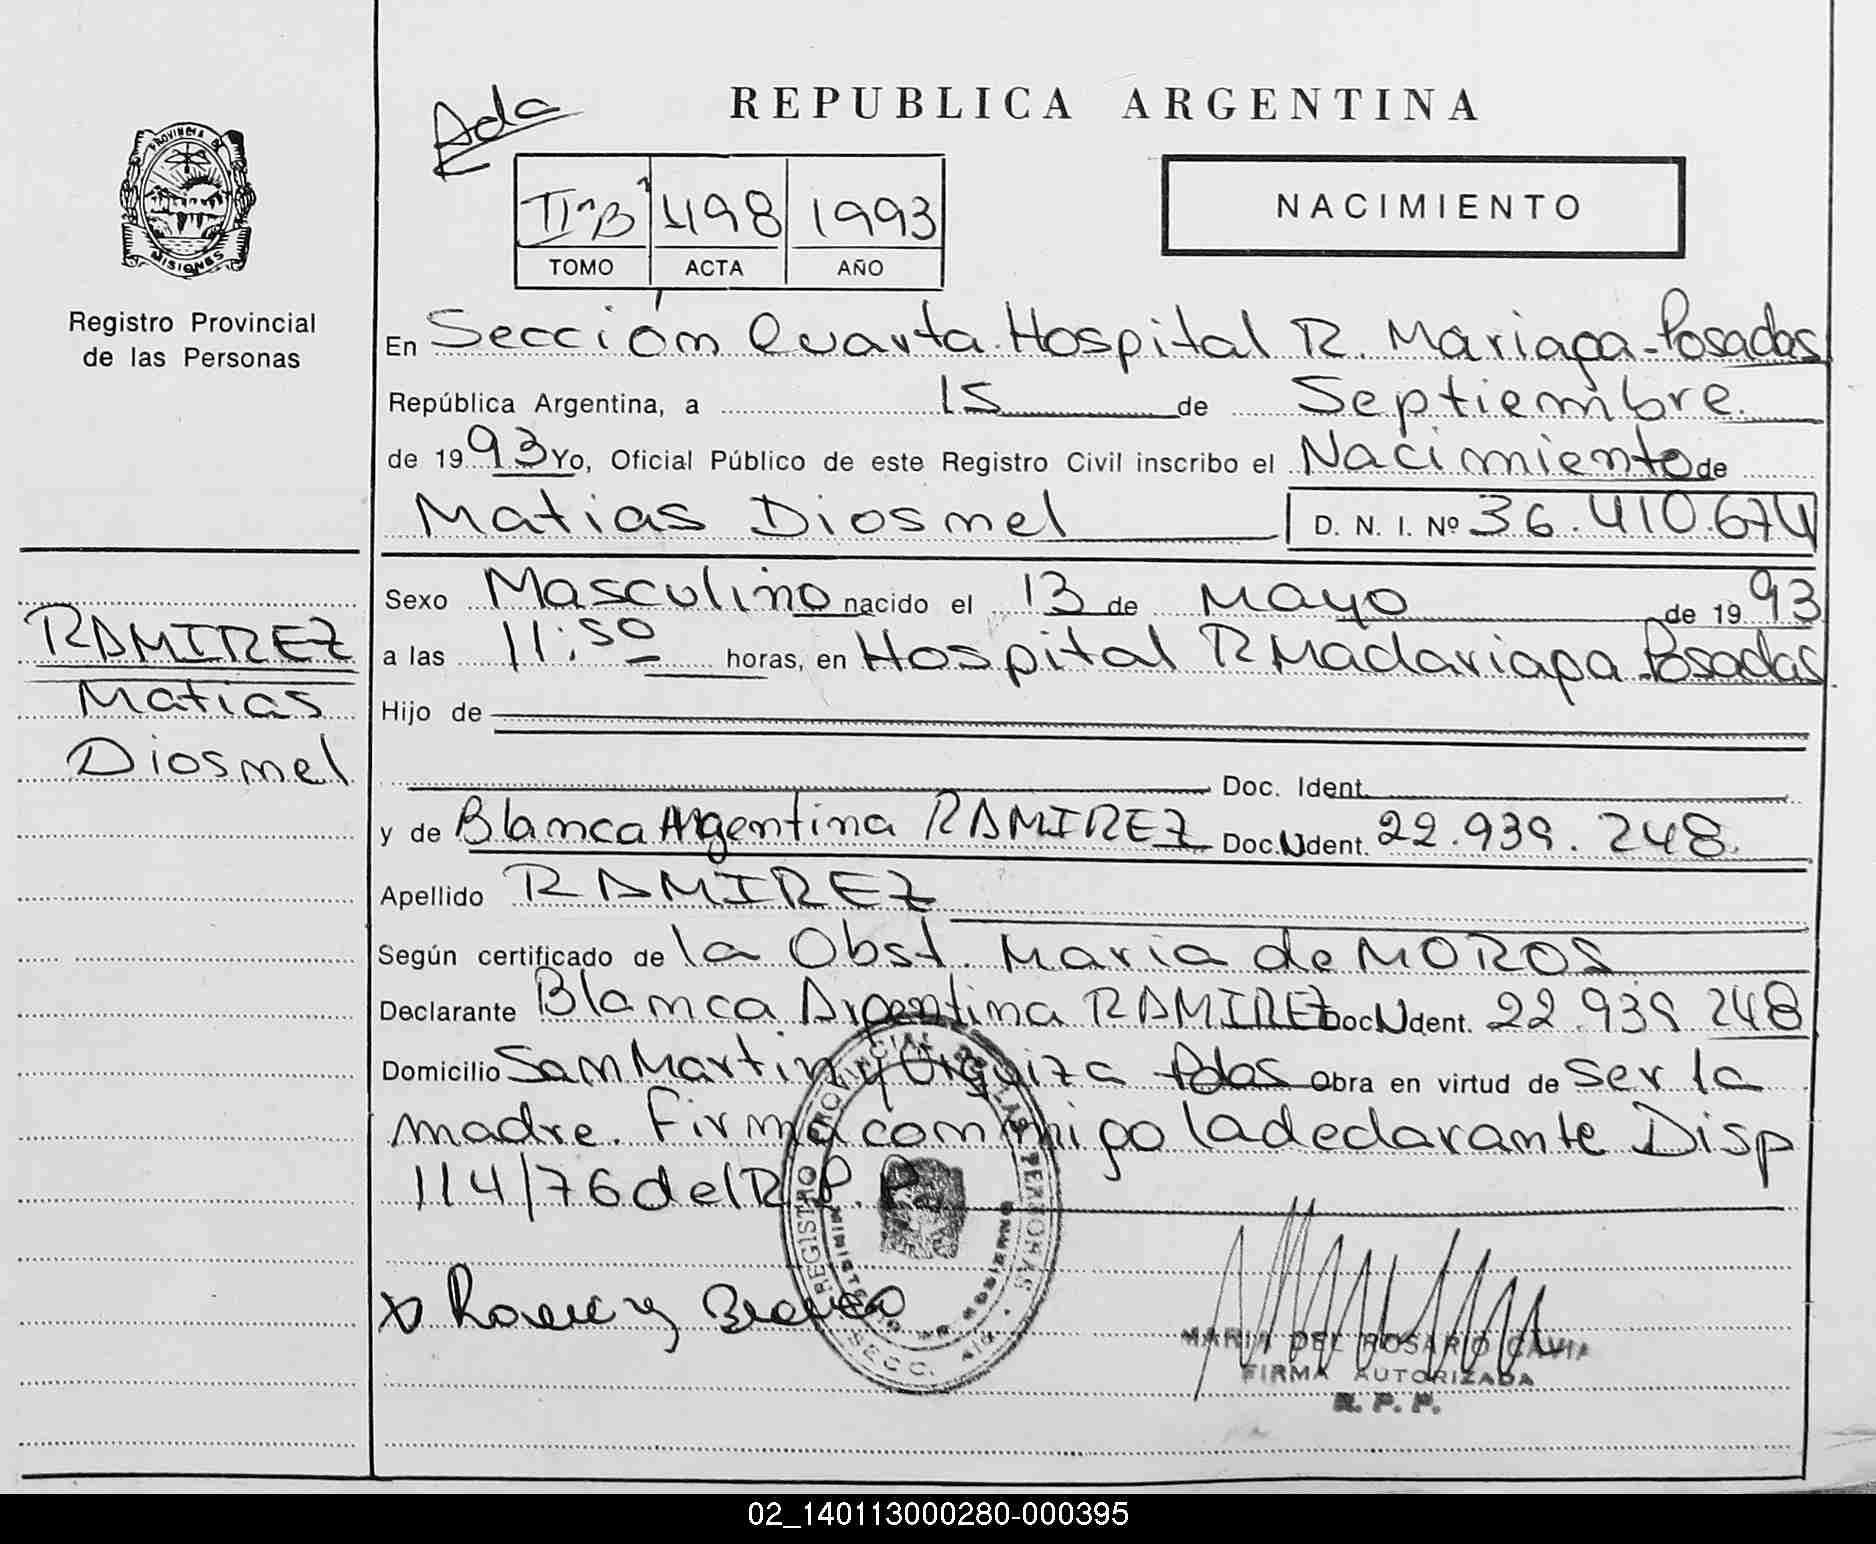 Ada
REPUBLICA ARGENTINA
PROVINCIA DE
MISIONES
Registro Provincial
de las Personas
TOMO ACTA AÑO
IIºB 498 1993
NACIMIENTO
En Sección Cuarta Hospital R. Mariaga-Posadas
República Argentina, a 15 de Septiembre
de 1993 Yo, Oficial Público de este Registro Civil inscribo el Nacimiento de
Matias Diosmel D. N. I. Nº 36.410.674
Sexo Masculino nacido el 13 de Mayo de 1993
a las 11:50 horas, en Hospital R Madariaga Posadas
Hijo de
Doc. Ident.
y de Blanca Argentina RAMIREZ Doc.Ndent. 22.939.248
Apellido RAMIREZ
Según certificado de la Obst. Maria de MOROS
Declarante Blanca Argentina RAMIREZ Doc Ndent. 22.939 248
Domicilio San Martin y Urquiza Pdas Obra en virtud de ser la
madre. Firma conmigo la declarante Disp
114/76 del R.P.P.
RAMIREZ
Matias
Diosmel
REGISTRO PROVINCIAL DE LAS PERSONAS
MINISTERIO DE GOBIERNO
SECC. 4ta
MARIA DEL ROSARIO CAVIA
FIRMA AUTORIZADA
R. P. P.
02_140113000280-000395